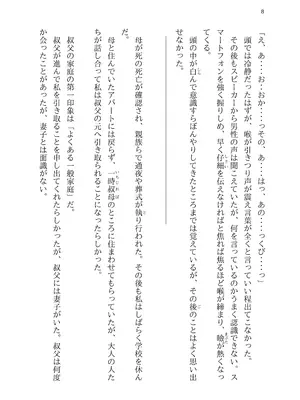 8
「え、あ・・・お・・おか・・・っその、あ・・・はっ、あの・・・っくび・・・っ」
頭では冷静だったはずが、喉が引きつり声が震え言葉が全くと言って出てこなかった。
その後もスピーカーから男性の声は聞こえていたが、何を言っているのかうまく認識できない。ス
マートフォンを強く握りしめ、早く仔細を伝えなければと焦れば焦るほど喉が締まり、瞼が熱くなっ
てくる。
頭の中が白んで意識すらぼんやりしてきたところまでは覚えているが、その後のことはよく思い出
せなかった。
母が死の死亡が確認され、親族らで通夜や葬式が執り行われた。その後も私はしばらく学校を休ん
だ。
母と住んでいたアパートには戻らず、一時叔母のところに住まわせてもらっていたが、大人の人た
ちが話し合って私は叔父の元へ引き取られることになったらしかった。
叔父の家庭の第一印象は『よくある一般家庭』だ。
叔父が進んで私を引き取ることを申し出てくれたらしかったが、叔父には妻子がいた。叔父は何度
か会ったことがあったが、妻子とは面識がない。